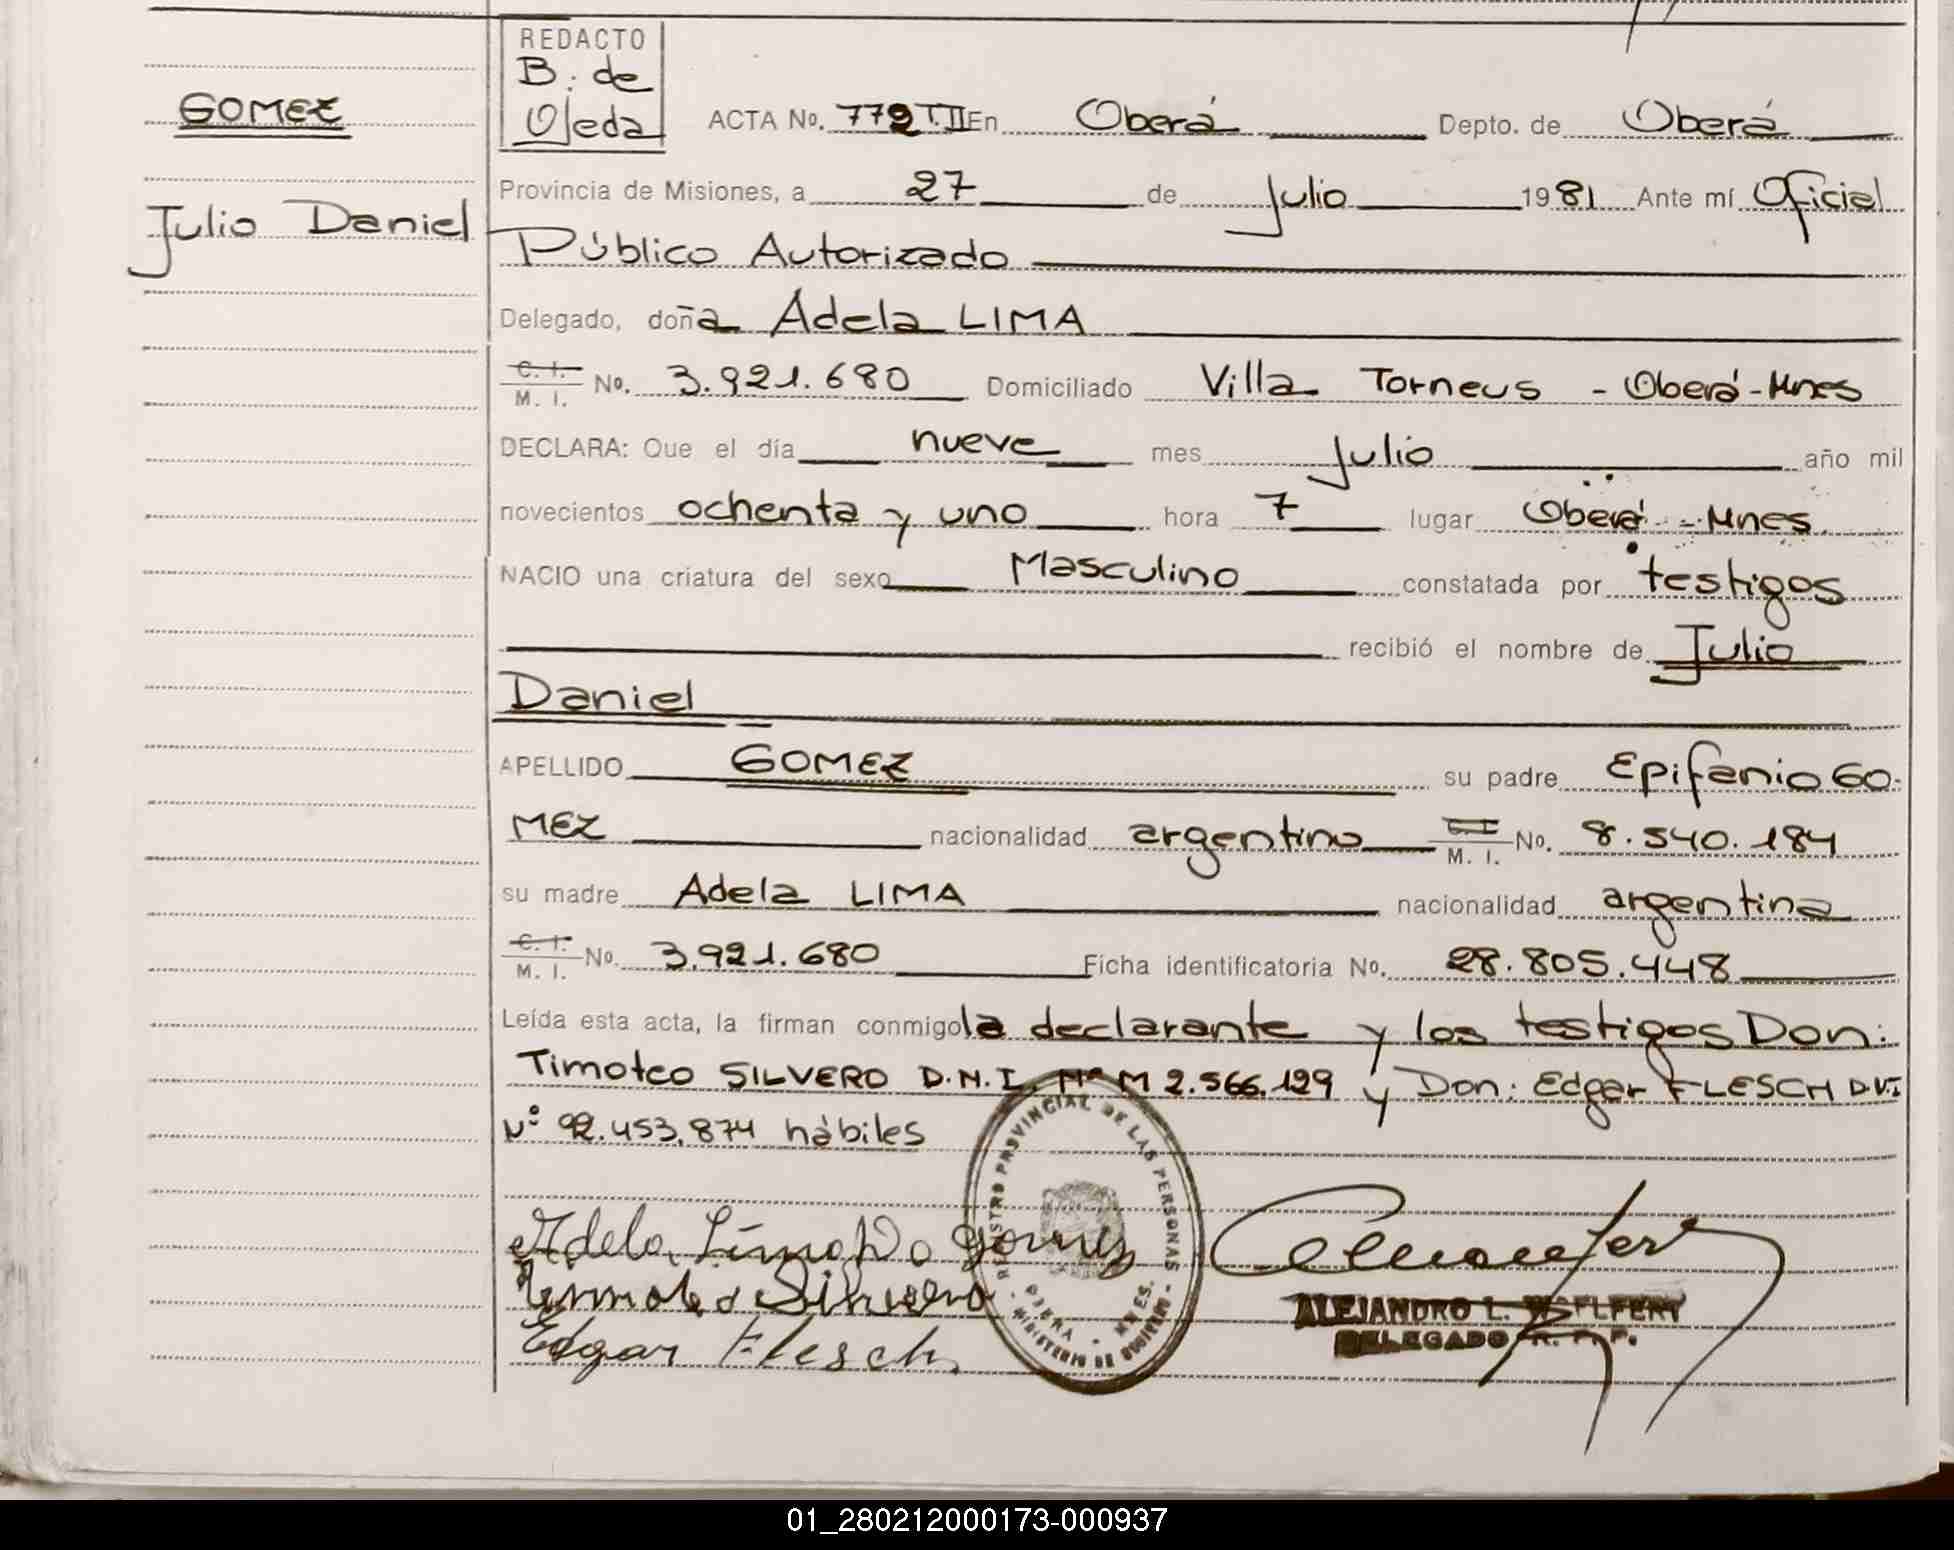 REDACTO
B. de
Ojeda
GOMEZ
Julio Daniel
ACTA No. 772 T.II En Oberá Depto. de Oberá
Provincia de Misiones, a 27 de Julio 1981 Ante mí Oficial
Público Autorizado
Delegado, doña Adela LIMA
C. I. M. I. No. 3.921.680 Domiciliado Villa Torneus - Oberá - Mnes
DECLARA: Que el día nueve mes Julio año mil
novecientos ochenta y uno hora 7 lugar Oberá - Mnes
NACIO una criatura del sexo Masculino constatada por testigos
recibió el nombre de Julio
Daniel
APELLIDO GOMEZ su padre Epifanio GO-
MEZ nacionalidad argentino C. I. M. I. No. 8.540.184
su madre Adela LIMA nacionalidad argentina
C. I. M. I. No. 3.921.680 Ficha identificatoria No. 28.805.448
Leída esta acta, la firman conmigo la declarante y los testigos Don:
Timoteo SILVERO D.N.I. Nº M 2.566.129 y Don: Edgar FLESCH D.N.I
Nº 92.453.874 hábiles
REGISTRO PROVINCIAL DE LAS PERSONAS
OBERA - MNES.
MINISTERIO DE GOBIERNO
Adela Lima de Gomez
Timoteo Silvero
Edgar Flesch
ALEJANDRO L. WOELFERT
DELEGADO R. P. P.
01_280212000173-000937